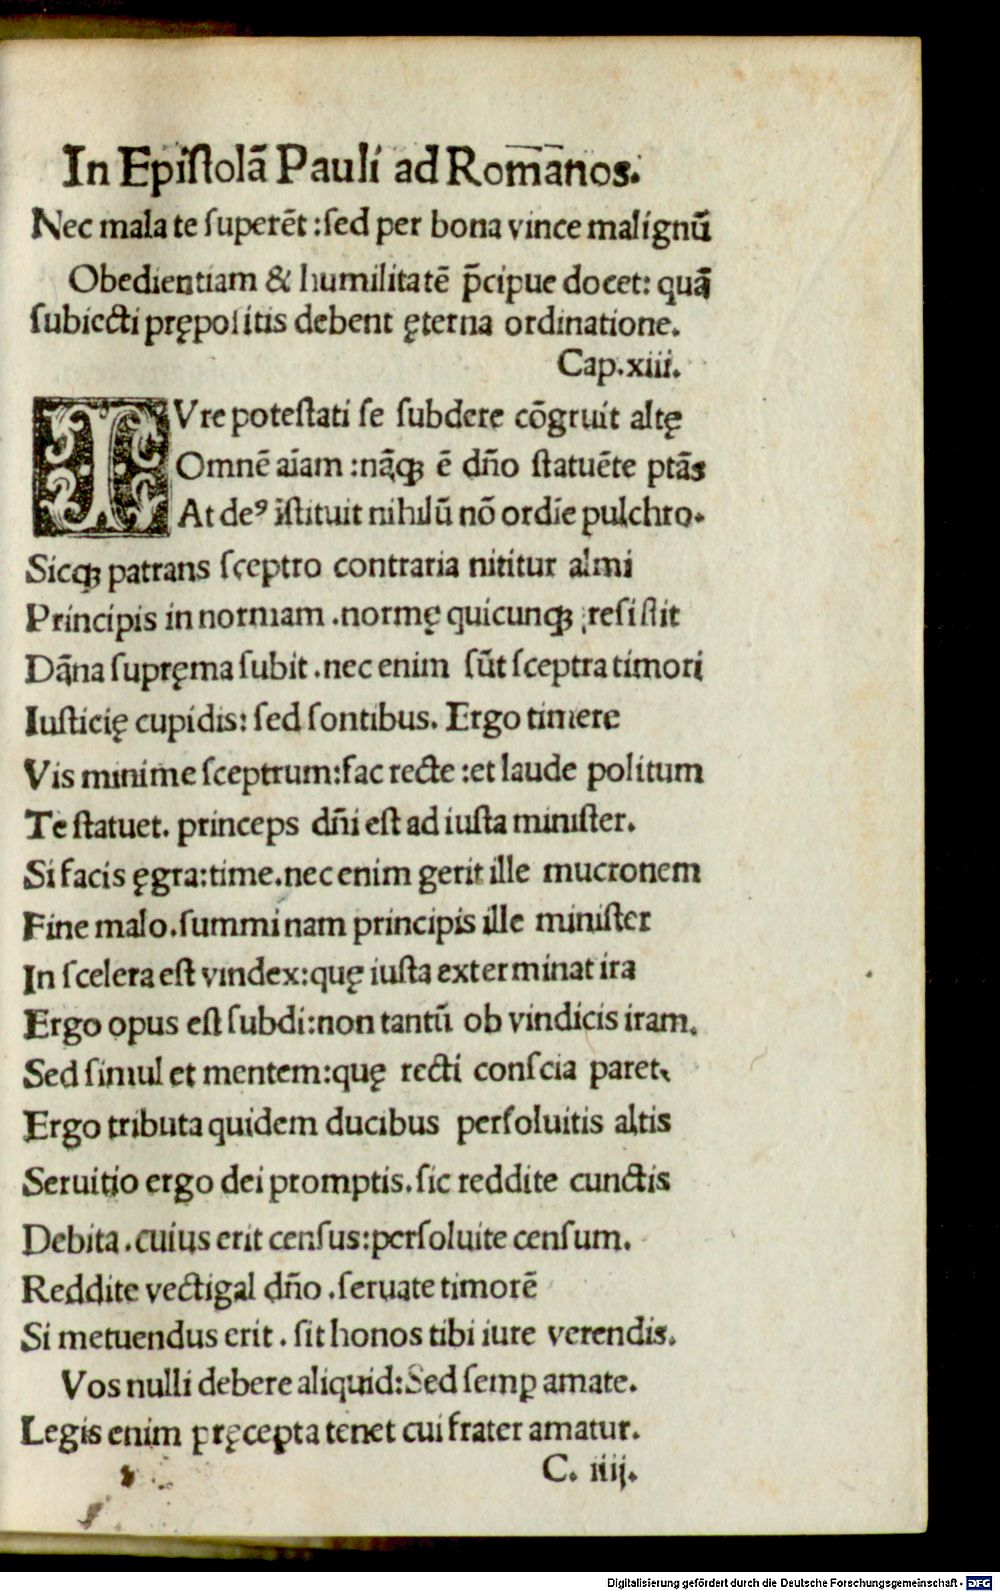 In Epiſtolã Pauli ad Roma̅nos.
Nec mala te ſuperẽt :ſed per bona vince malignũ
Obedientiam & humilitatẽ p̃cipue docet: quã
ſubiecti prępoſitis debent ęterna ordinatione.
Cap.xiii.
IVre poteſtati ſe ſubdere cõgruit altę
Omnẽ aĩam :nãqꝫ ẽ dño ſtatuẽte ptãs
At deꝰ ĩſtituit nihilũ nõ ordĩe pulchro.
Sicqꝫ patrans ſceptro contraria nititur almi
Principis in normam .normę quicunqꝫ reſiſtit
Dãna ſupręma ſubit .nec enim ſũt ſceptra timori
Iuſticię cupidis: ſed ſontibus. Ergo timere
Vis minime ſceptrum:fac recte :et laude politum
Te ſtatuet. princeps dñi eſt ad iuſta miniſter.
Si facis ęgra:time.nec enim gerit ille mucronem
Fine malo.ſummi nam principis ille miniſter
In ſcelera eſt vindex:quę iuſta exterminat ira
Ergo opus eſt ſubdi:non tantũ ob vindicis iram.
Sed ſimul et mentem:quę recti conſcia paret.
Ergo tributa quidem ducibus perſoluitis altis
Seruitio ergo dei promptis.ſic reddite cunctis
Debita .cuius erit cenſus:perſoluite cenſum.
Reddite vectigal dño .ſeruate timorẽ
Si metuendus erit . ſit honos tibi iure verendis.
Vos nulli debere aliquid:Sed ſemꝑ amate.
Legis enim pręcepta tenet cui frater amatur.
C. iiij.
Digitalisierung gefördert durch die Deutsche Forschungsgemeinschaft - DFG